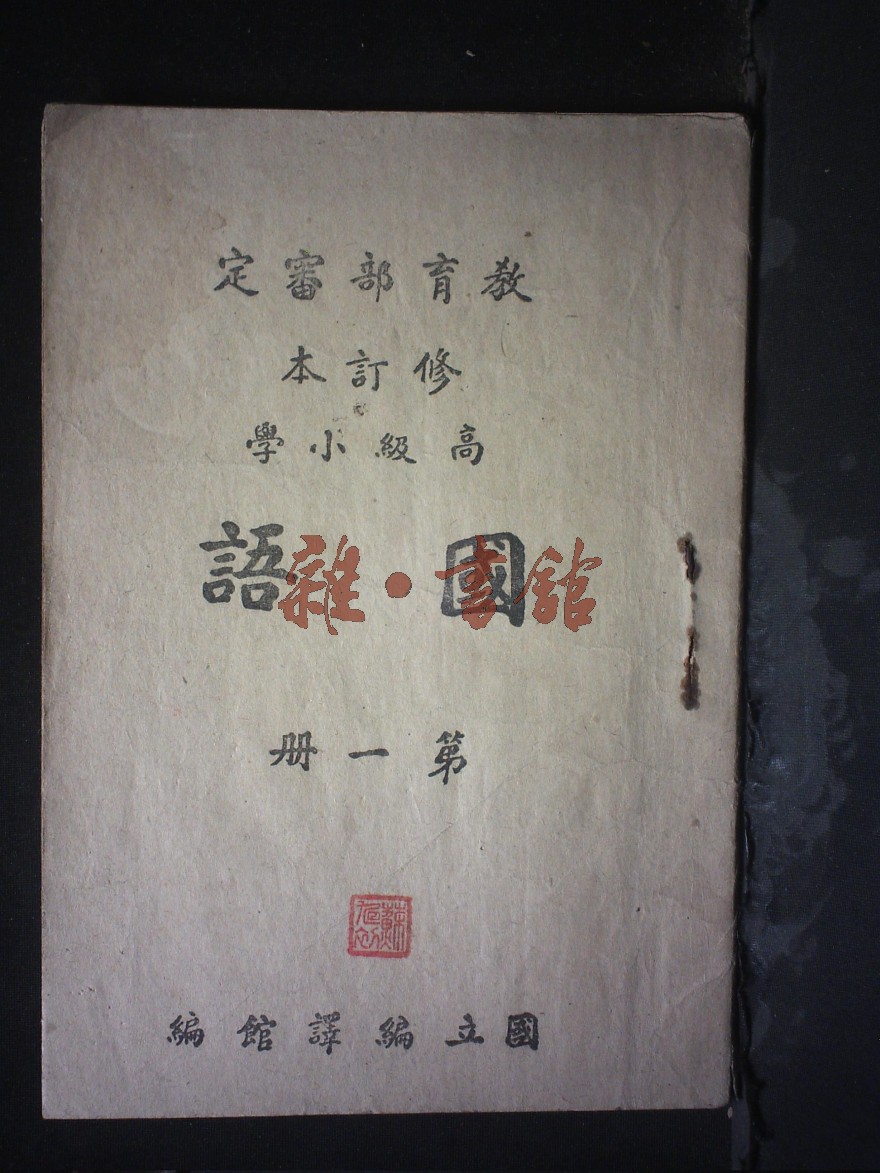 教育部審定
修訂本
高級小學
國語
雜·書館
第一册
國立編譯館編